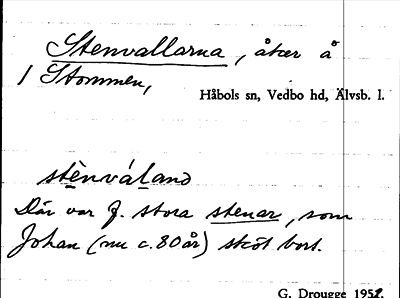 Stenvallarna, åker å
1 Stommen,
Håbols sn, Vedbo hd, Älvsb. l.
stènváland
Där var f. stora stenar, som
Johan (nu c. 80 år) sköt bort.
G. Drougge 1951.